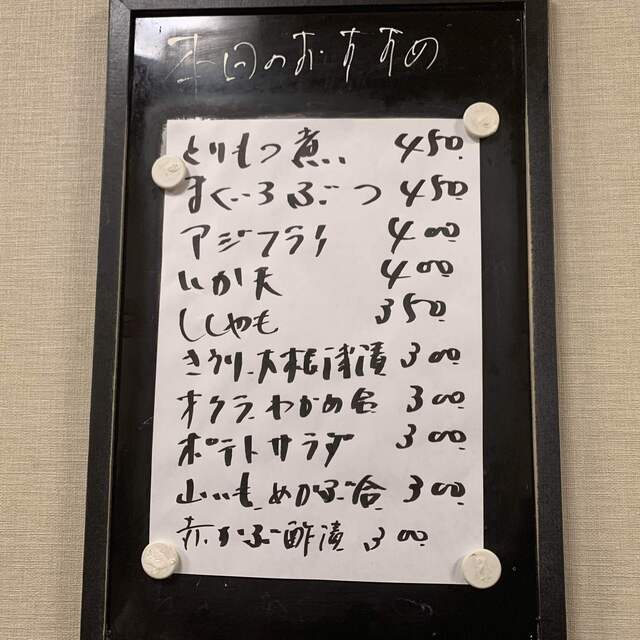 本日のおすすめ
とりもつ煮 450.
まぐろぶつ 450.
アジフライ 400.
いか天 400.
ししゃも 350.
きうり、大根浅漬 300.
オクラ、わかめ合 300.
ポテトサラダ 300.
山いも、めかぶ合 300.
赤かぶ酢漬 300.